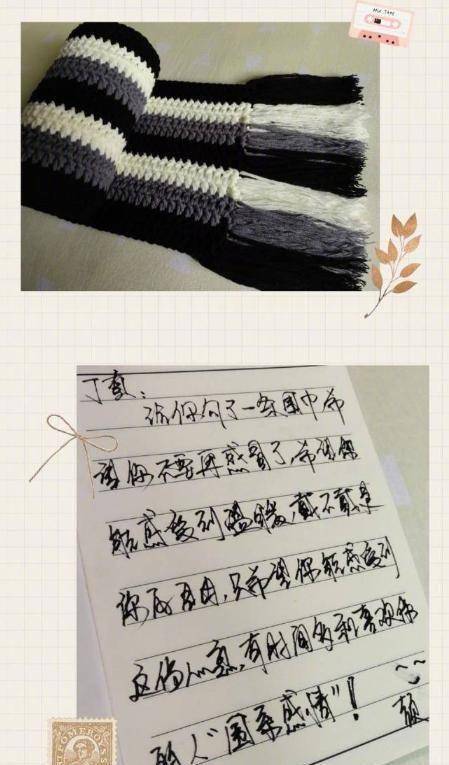 MIX TAPE
丁真：
给你勾了一条围巾希
望你不要再感冒了，希望你
能感受到温暖，戴不戴是
你的自由，只希望你能感受到
这份心意，有时间多和喜欢你
的人“围系感情”！
颜
POMEROY'S